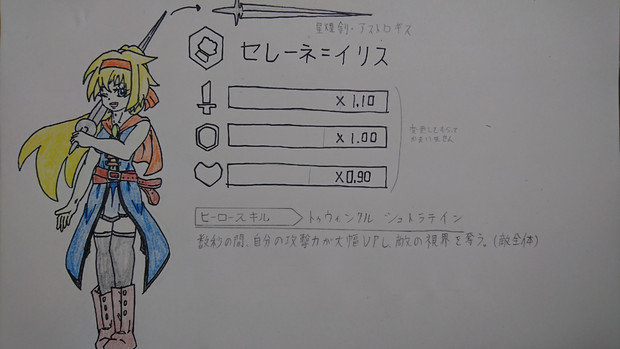 星煌剣・アストロギス
セレーネ=イリス
×1.10
×1.00
×0.90
変更しても
かまいません
ヒーロースキル
トゥウィンクル シュトラテイン
数秒の間、自分の攻撃力が大幅UPし、敵の視界を奪う。(敵全体)